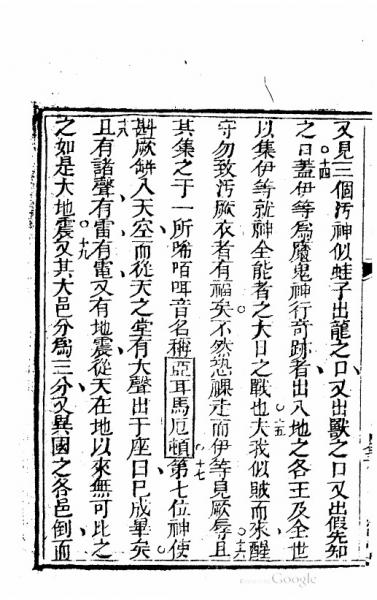 又見三個汚神似蛙子出龍之口又出獸之口又出假先知
○十四
之曰蓋伊等爲魔鬼神行奇跡者出入地之各王及全世
以集伊等就神全能者之大日之戰也夫我似賊而來醒
○十五
守勿致汚厥衣者有福矣不然恐祼走而伊等見厥辱且
○十六
其集之于一所唏咟咡音名稱亞耳馬厄頓第七位神使
○十七
斟厥缾入天空而從天之堂有大聲出于座曰已成畢矣
十八
且有諸聲有雷有電又有地震從天在地以來無可比之
之如是大地震又其大邑分爲三分又異國之各邑倒而
○十九
Google